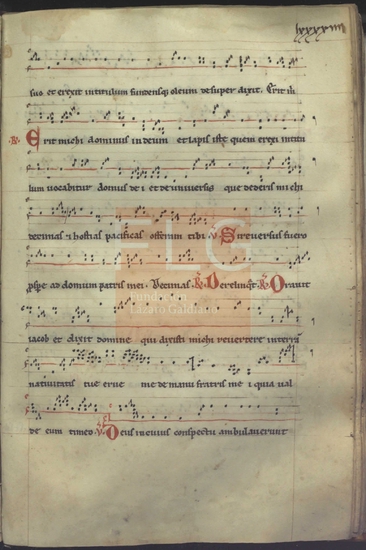 lxxxxviii
suo et erexit in titulum fundensq; oleum desuper dixit. Erit m̄
R. Erit michi dominus in deum et lapis iste quem erexi in titu
lum vocabitur domus dei et de universis que dederis michi
decimas et hostias pacificas offeram tibi V. Si reversus fuero
prospe ad domum patris mei. Decimas. R. Derelinqt. R. Oravit
iacob et dixit domine qui dixisti michi revertere in terrā
nativitatis tue erue me de manu fratris mei quia val
de eum timeo. V. Deus in cuius conspectu ambulaverunt
FLG
Fundación
Lázaro Galdiano